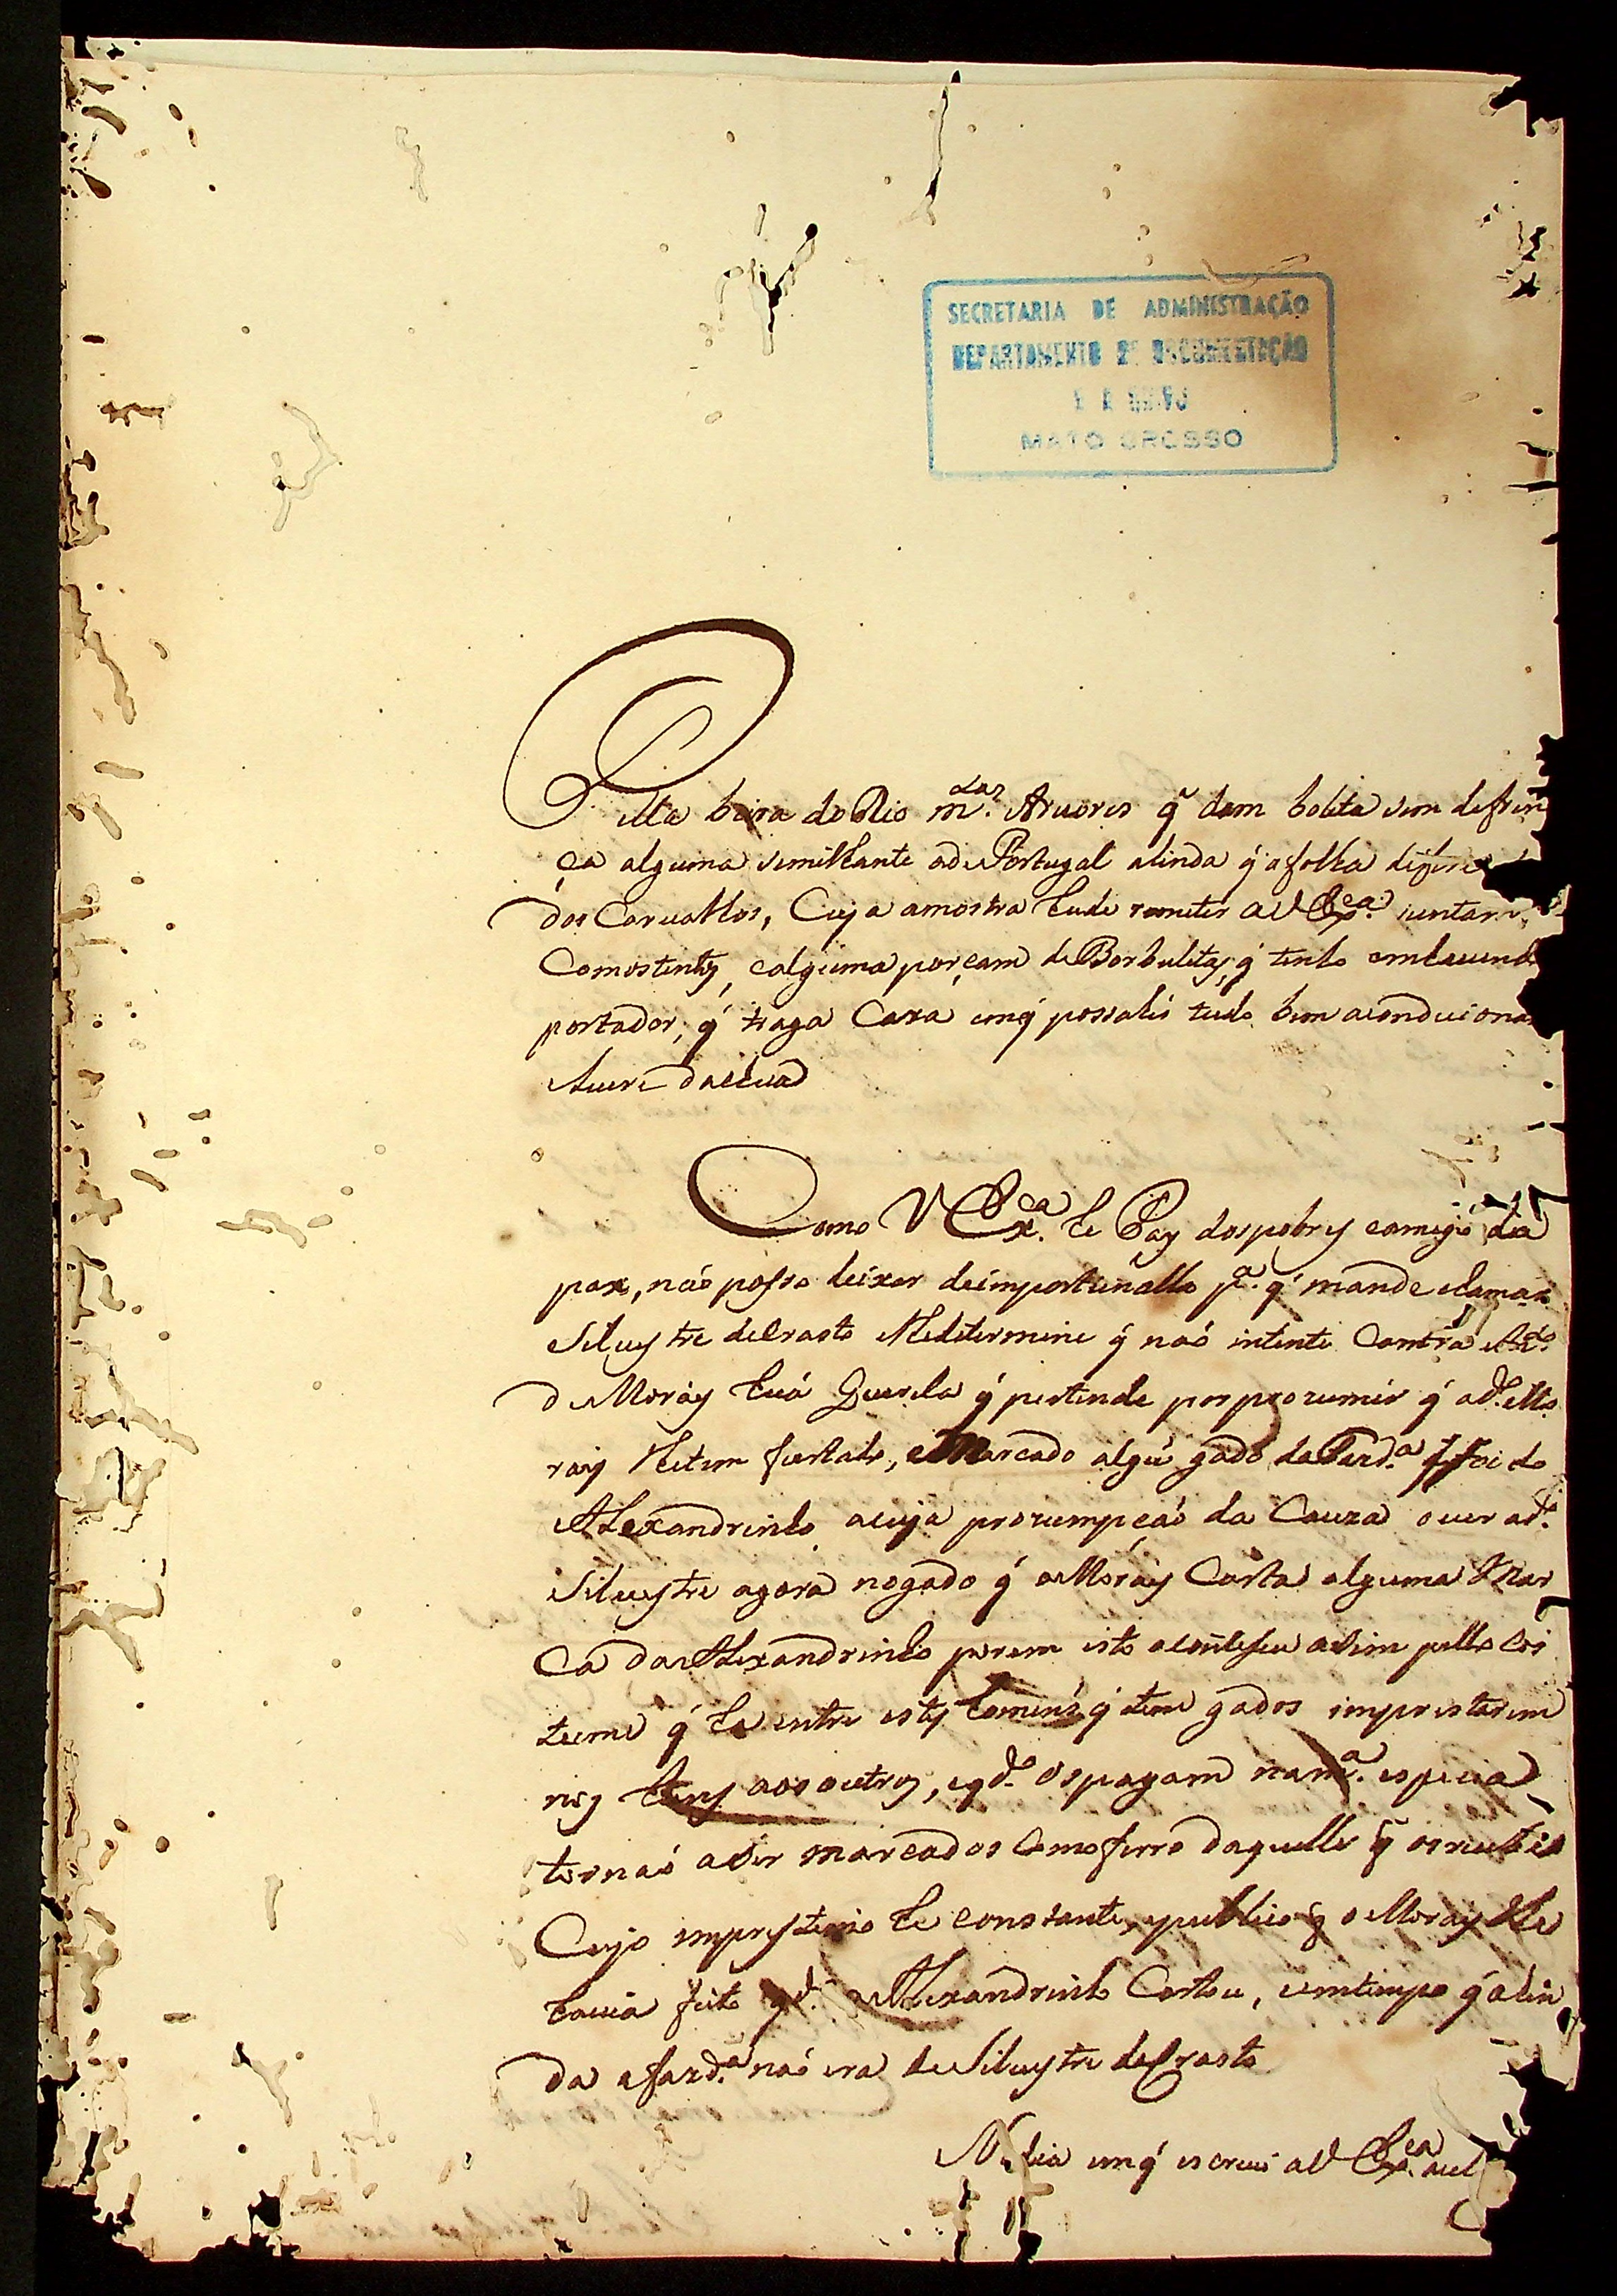 SECRETARIA DE ADMINISTRAÇÃO
DEPARTAMENTO DE DOCUMENTAÇÃO
MATO GROSSO
beira do Rio m.tas Aruores q̃ dam boleta sem defren
ça alguma semilhante ade Portugal ainda q́ a folha difere
dos Carualhos, Cuja amostra heide remeter a V Ex.ca juntam
Comostintes, e alguma porçam de Borbuletas, q́ tenho emhauend
portador, q́ traga Caxa emq́ possahir tudo bem acondiciona
Liure da chuva
Como V Ex.ca he Pay dos pobres e amigo da
pax, náo posso deixar deimportunallo p.a q́ mande chamar
Siluestre deCrasto eledetermine q́ naó intente Contra
de Moráes huá Querela q́ pertende por prozumir q́ ad.o Mo
raes lhetem furtado, e Marcado algú gado da Fazd.a q́ foi do
Alexandrinho acuja prozumpçaó da Cauza o uer ad.o
Siluestre agora nogado q́ o Moráes Corta alguma Mar
Ca do Alexandrinho porem isto aconteseu asim pello cos
tume q́ ha entre estes homens q́ tem gados imprestarem
huns aos outros, e qd.o os pagam na m.a especia
tornaó aser marcados Como ferro daquelle q̃ os recebeo
Cujo imprestimo he constante, epublico q́ o Moraes lhe
hauia feito qd.o o Alexandrinho Cortou, e emtempo q́ ain
da a fazd.a naó era de Siluestre deCrasto
No dia emq́ escreui a V Ex.ca